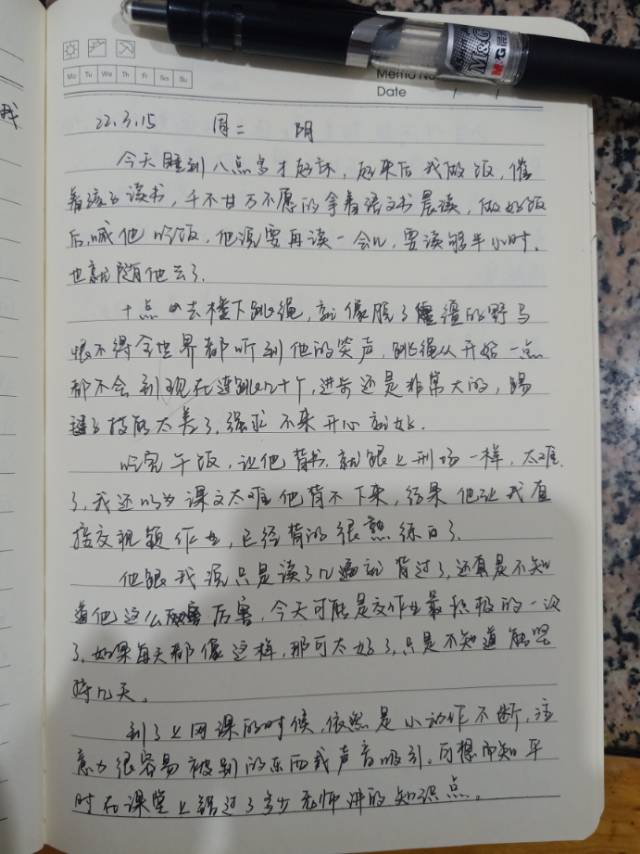 我
M&G
M&G
Memo No.
Mo Tu We Th Fr Sa Su
Date / /
22.3.15 周二 阴
今天睡到八点多才起床，起来后我做饭，催
着孩子读书，千不甘万不愿的拿着语文书晨读，做好饭
后，喊他吃饭，他说要再读一会儿，要读够半小时，
也就随他去了。
十点去楼下跳绳，就像脱了缰的野马
恨不得全世界都听到他的笑声，跳绳从开始一点
都不会到现在连跳几十个，进步还是非常大的，踢
毽子技能太差了，强求不来开心就好。
吃完午饭，让他背书，就跟上刑场一样，太难
了，我还以为课文太难他背不下来，结果他让我直
接交视频作业，已经背的很熟练的了。
他跟我说只是读了几遍就背过了，还真是不知
道他这么厉害，今天可能是交作业最积极的一次
了，如果每天都像这样，那可太好了，只是不知道能坚
持几天。
到了上网课的时候，依然是小动作不断，注
意力很容易被别的东西或声音吸引，可想而知平
时在课堂上错过了多少老师讲的知识点。